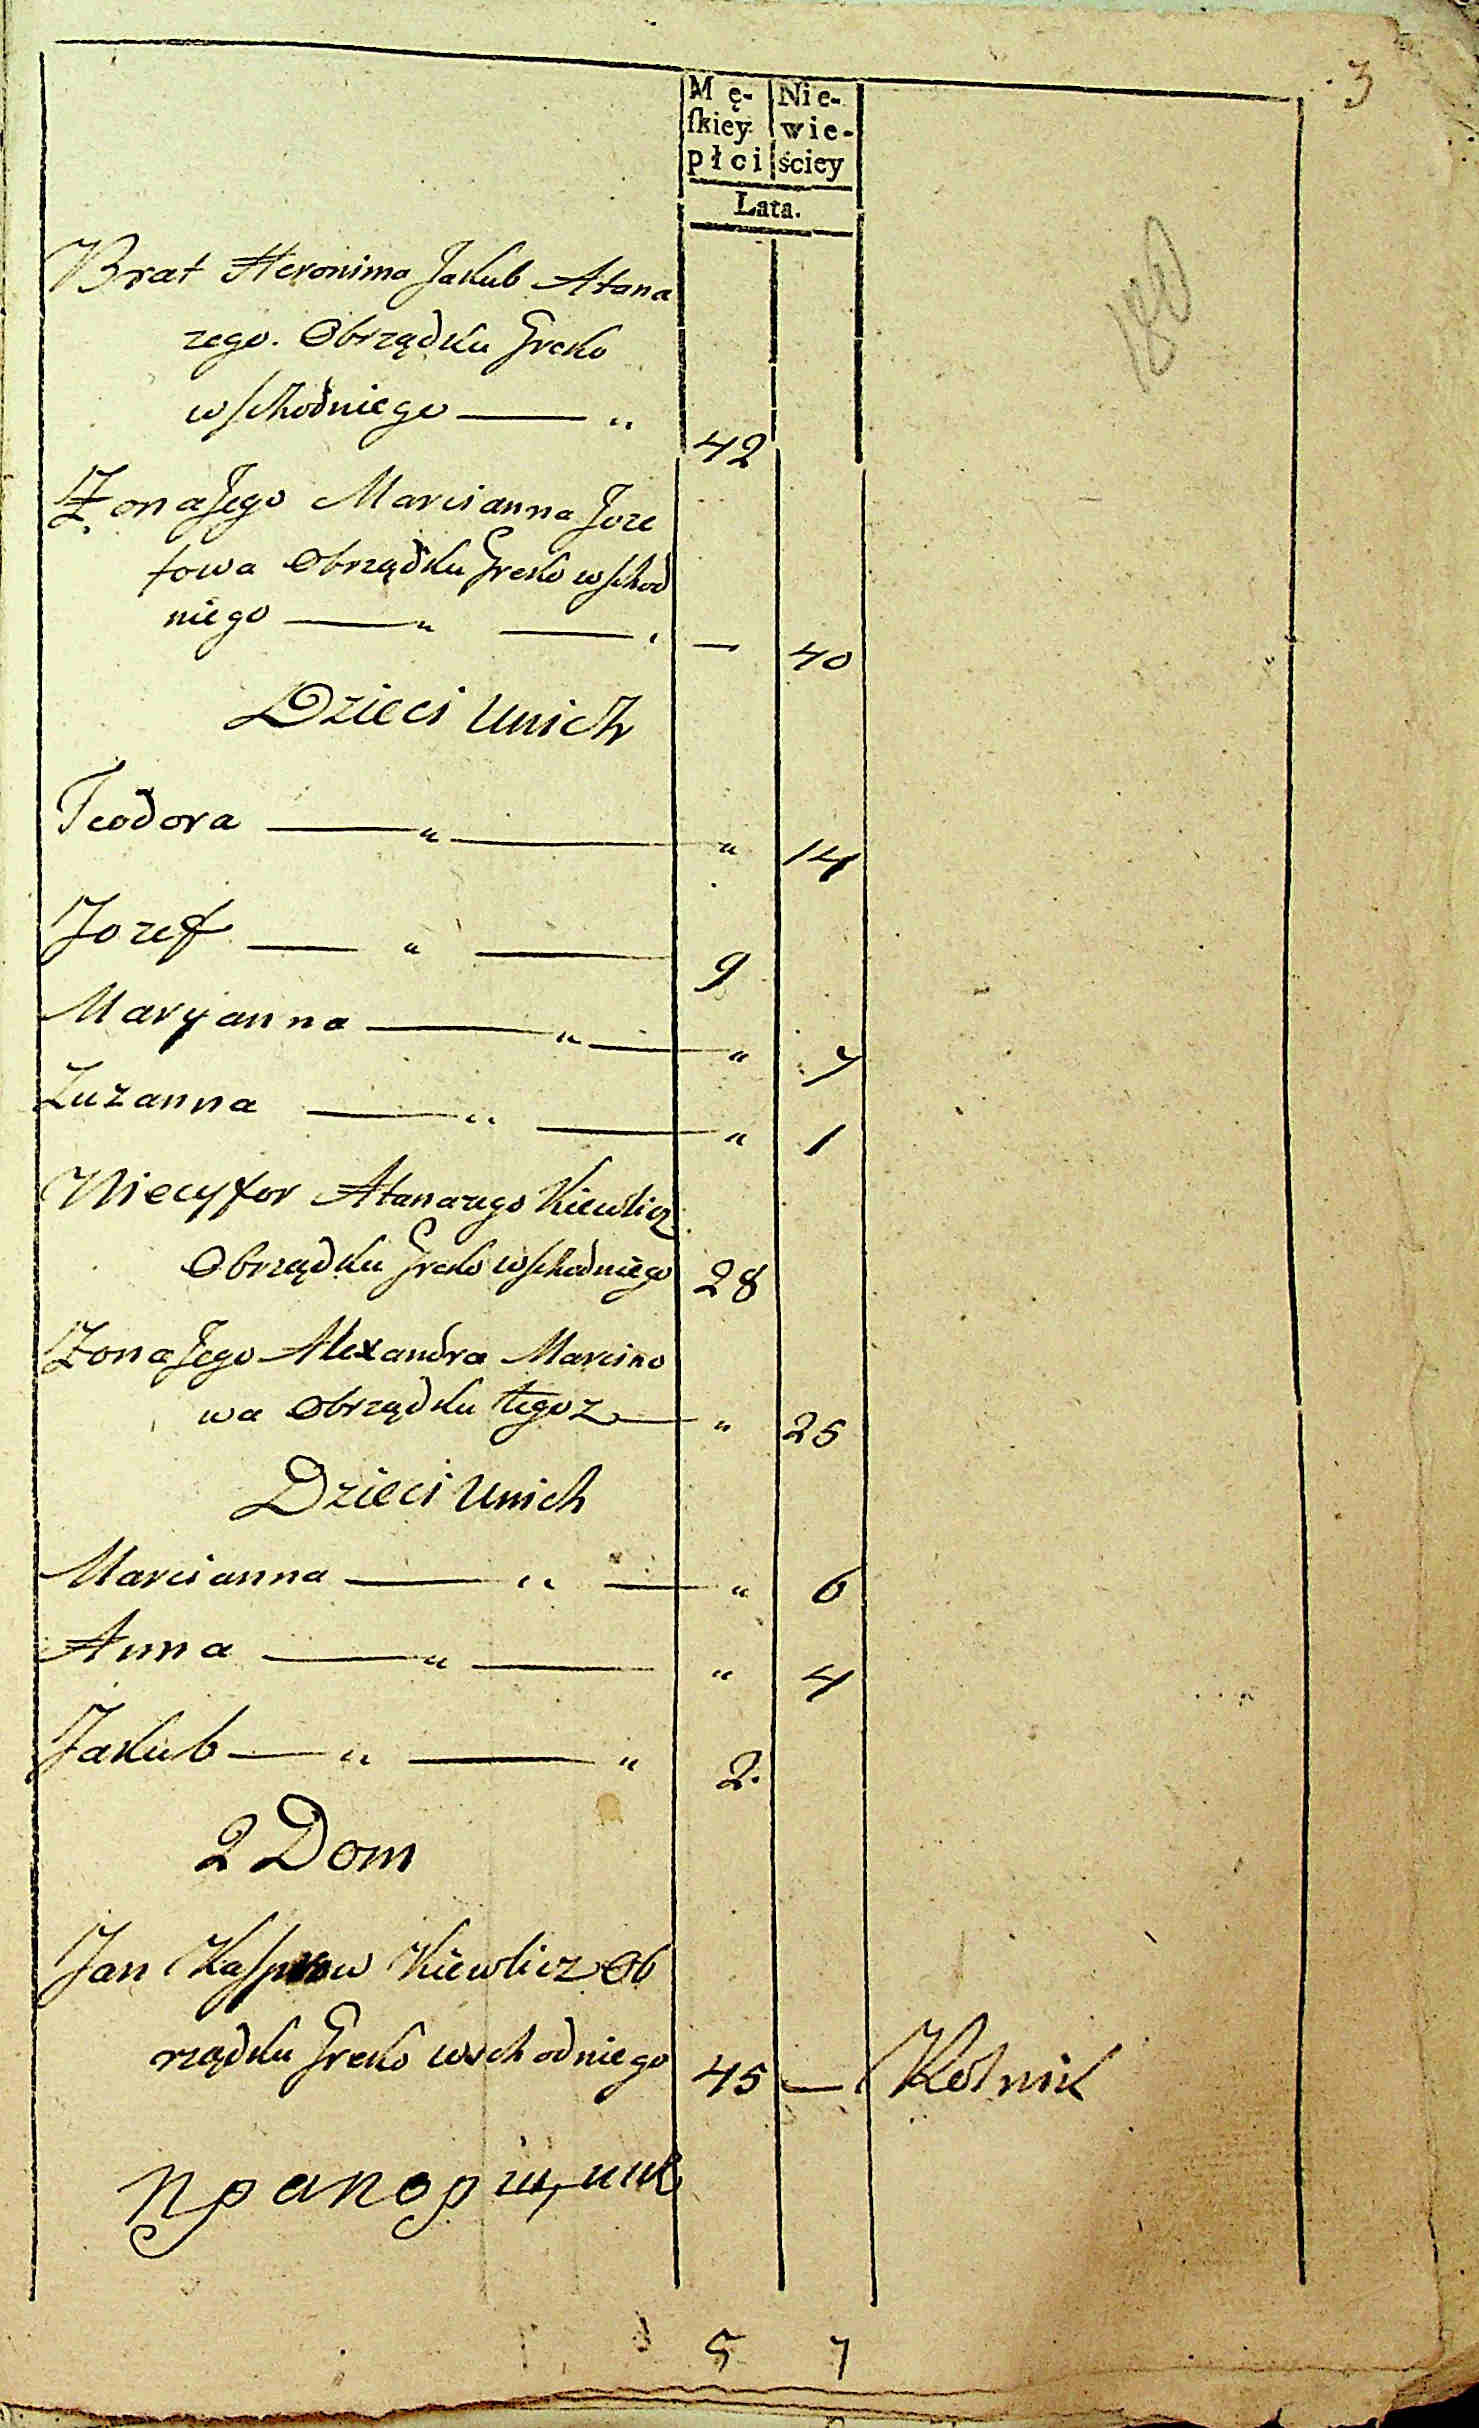 3
Mę- Nie-
ſkiey wie-
płci ściey
Lata.
180
Brat Heronima Jakub Atana
zego. Obrządku Greko
wschodniego — „ 42
Żona Jego Marcianna Joze
fowa Obrządku Greko wschod
niego — „ — — 40
Dzieci unich
Teodora — „ — „ 14
Jozef — „ — 9
Maryanna — „ — „ 7
Zuzanna — „ — „ 1
Niecyfor Atanazego Kiewlicz
Obrządku Greko wschodniego 28
Żona Jego Alexandra Marcino
wa Obrządku tegoz — „ 25
Dzieci unich
Marcianna — „ — „ 6
Anna — „ — „ 4
Jakub — „ — „ 2.
2 Dom
Jan Kasprow Kiewlicz Ob
rządku Greko wschodniego 45 — Rolnik
прапорщик
5 7